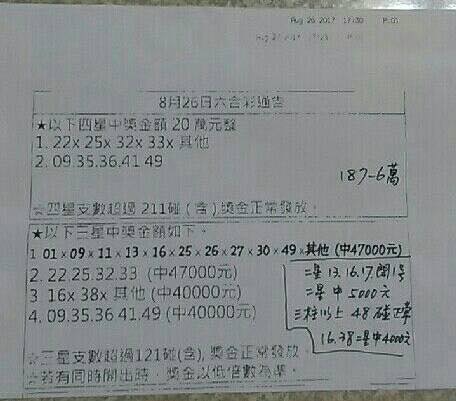 Aug 26 2017 17:30 P.01
8月26日六合彩通告
★以下四星中獎金額 20 萬元整
1. 22x 25x 32x 33x 其他
2. 09.35.36.41 49
187-6萬
☆四星支數超過 211碰 (含),獎金正常發放。
★以下三星中獎金額如下。
1 01×09×11×13×16×25×26×27×30×49×其他(中47000元)
2. 22 25.32.33 (中47000元)
3 16x 38x 其他 (中40000元)
4. 09.35.36 41.49 (中40000元)
二星 13.16.17.開1号
二星中 5000元
三柱以上 48 碰正常
16.38二星中4000元
☆三星支數超過121碰(含), 獎金正常發放。
☆若有同時開出時, 獎金以低倍數為準。